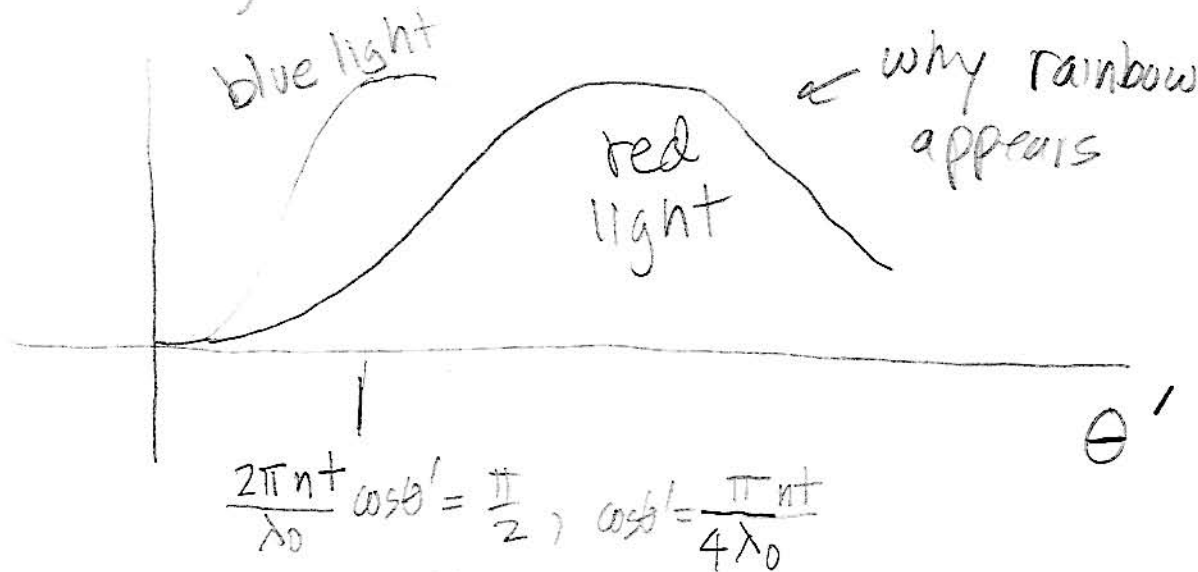 blue light
← why rainbow
appears
red
light
θ'
2πnt/λ₀ cosθ' = π/2, cosθ' = πnt/4λ₀